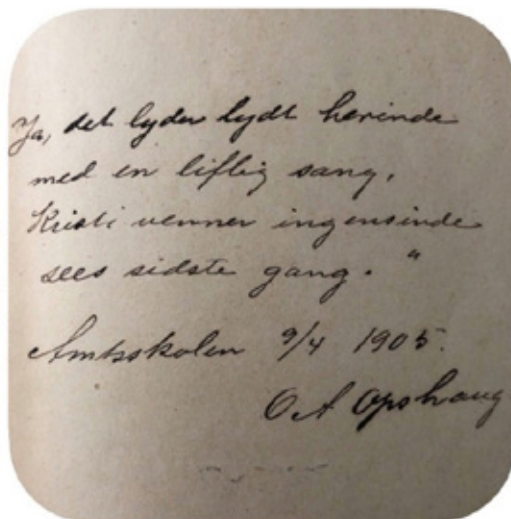 Ja, det lyder lydt herinde
med en liflig sang,
Kristi venner ingensinde
sees sidste gang. "
Amtsskolen 9/4 1905.
O A Opshaug